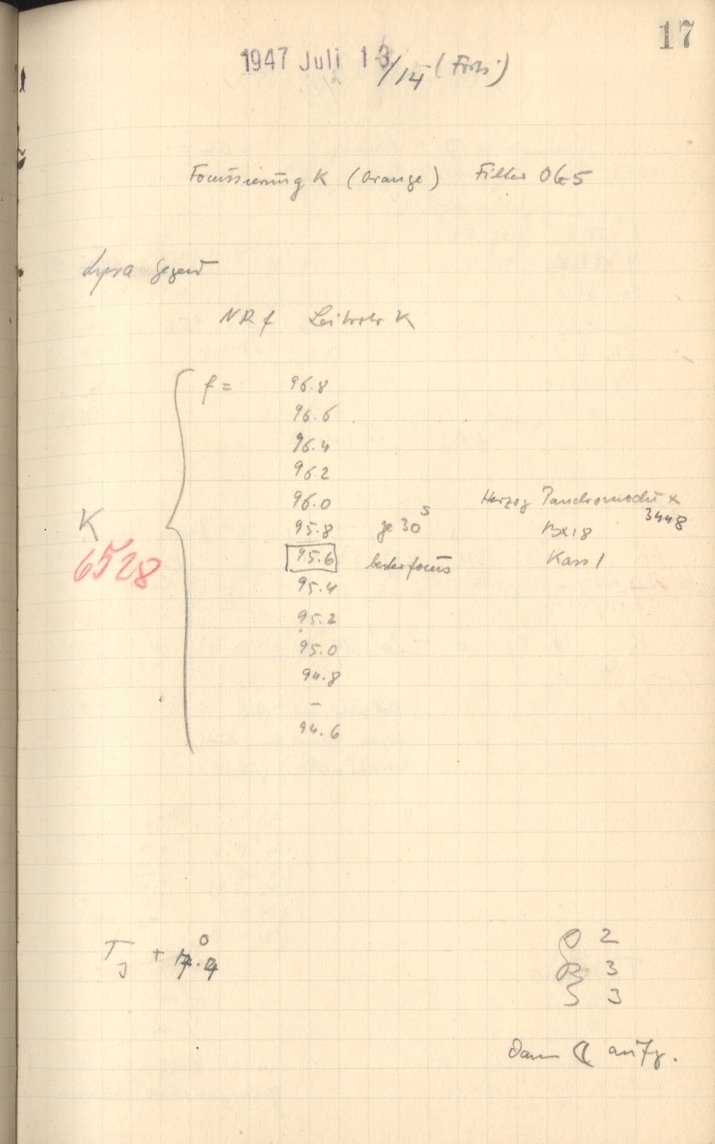 17
1947 Juli 13/14
Focussierung K (Orange) Filter OG5
Lyra Gegend
NR f Leitrohr K
f = 96.8
96.6
96.4
96.2
96.0 Herzog Panchromatic
K 95.8 je 30s 3448
6528 95.6 bester focus Kass 1
95.4
95.2
95.0
94.8
–
94.6
TJ + 7.4
2
R 3
S 3
Dann ☾ aufg.